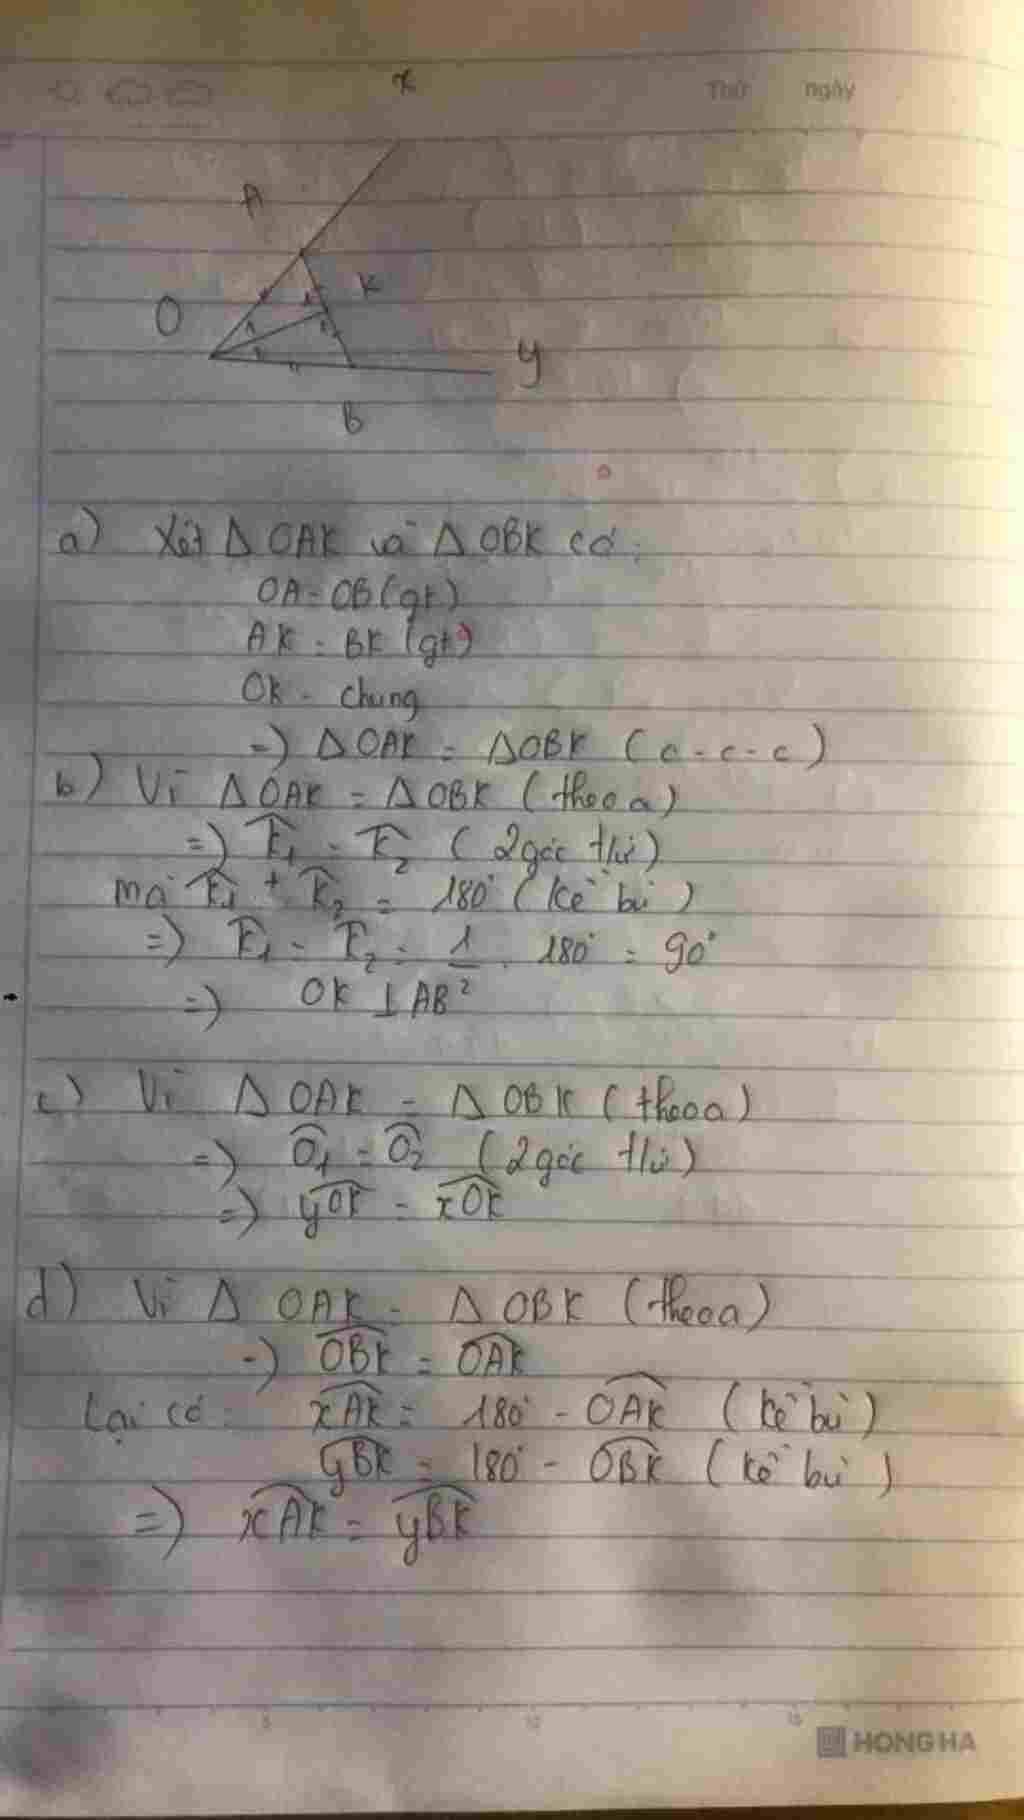 Thứ ngày
x
A
K
O
y
B
a) Xét Δ OAK và Δ OBK có:
OA = OB (gt)
AK = BK (gt)
OK - chung
=) Δ OAK = Δ OBK ( c - c - c )
b) Vì Δ OAK = Δ OBK ( theo a)
=) K̂₁ = K̂₂ ( 2 góc t/ứ)
mà K̂₁ + K̂₂ = 180° ( kề bù )
=) K̂₁ = K̂₂ = 1/2 . 180° = 90°
=) OK ⊥ AB
c) Vì Δ OAK = Δ OBK ( theo a)
=) Ô₁ = Ô₂ ( 2 góc t/ứ)
=) yOK = xOK
d) Vì Δ OAK = Δ OBK (theo a)
=) OBK = OAK
Lại có: xAK = 180° - OAK ( kề bù )
yBK = 180° - OBK ( kề bù )
=) xAK = yBK
5 10 15
HONG HA